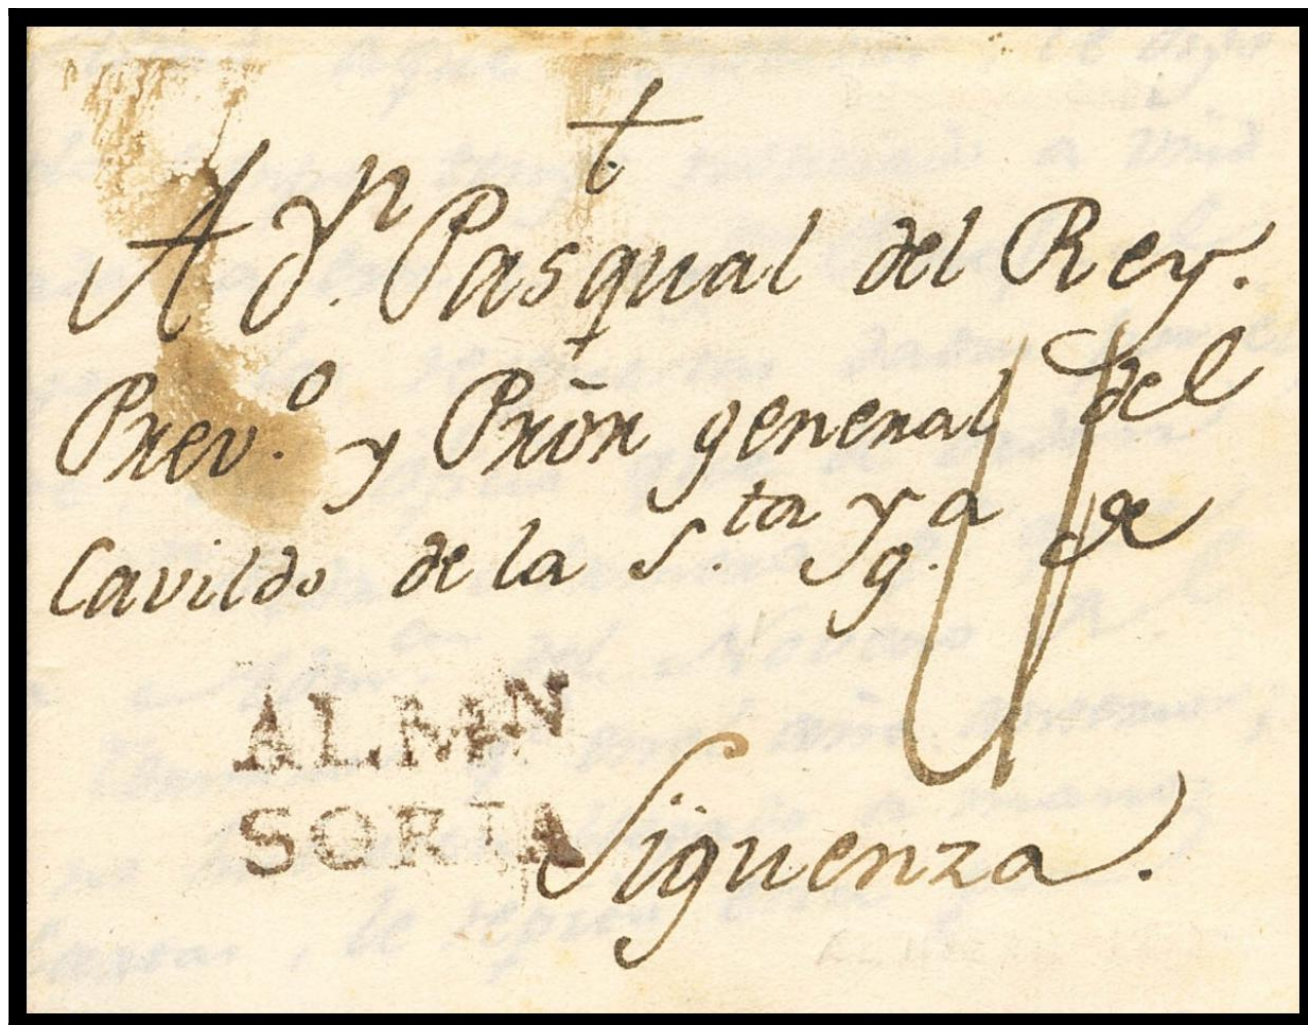 †
A Dn. Pasqual del Rey.
Prevo. y Prōr general del
Cavildo de la S.ta Yga. de
ALMN
SORIA
Sigüenza.